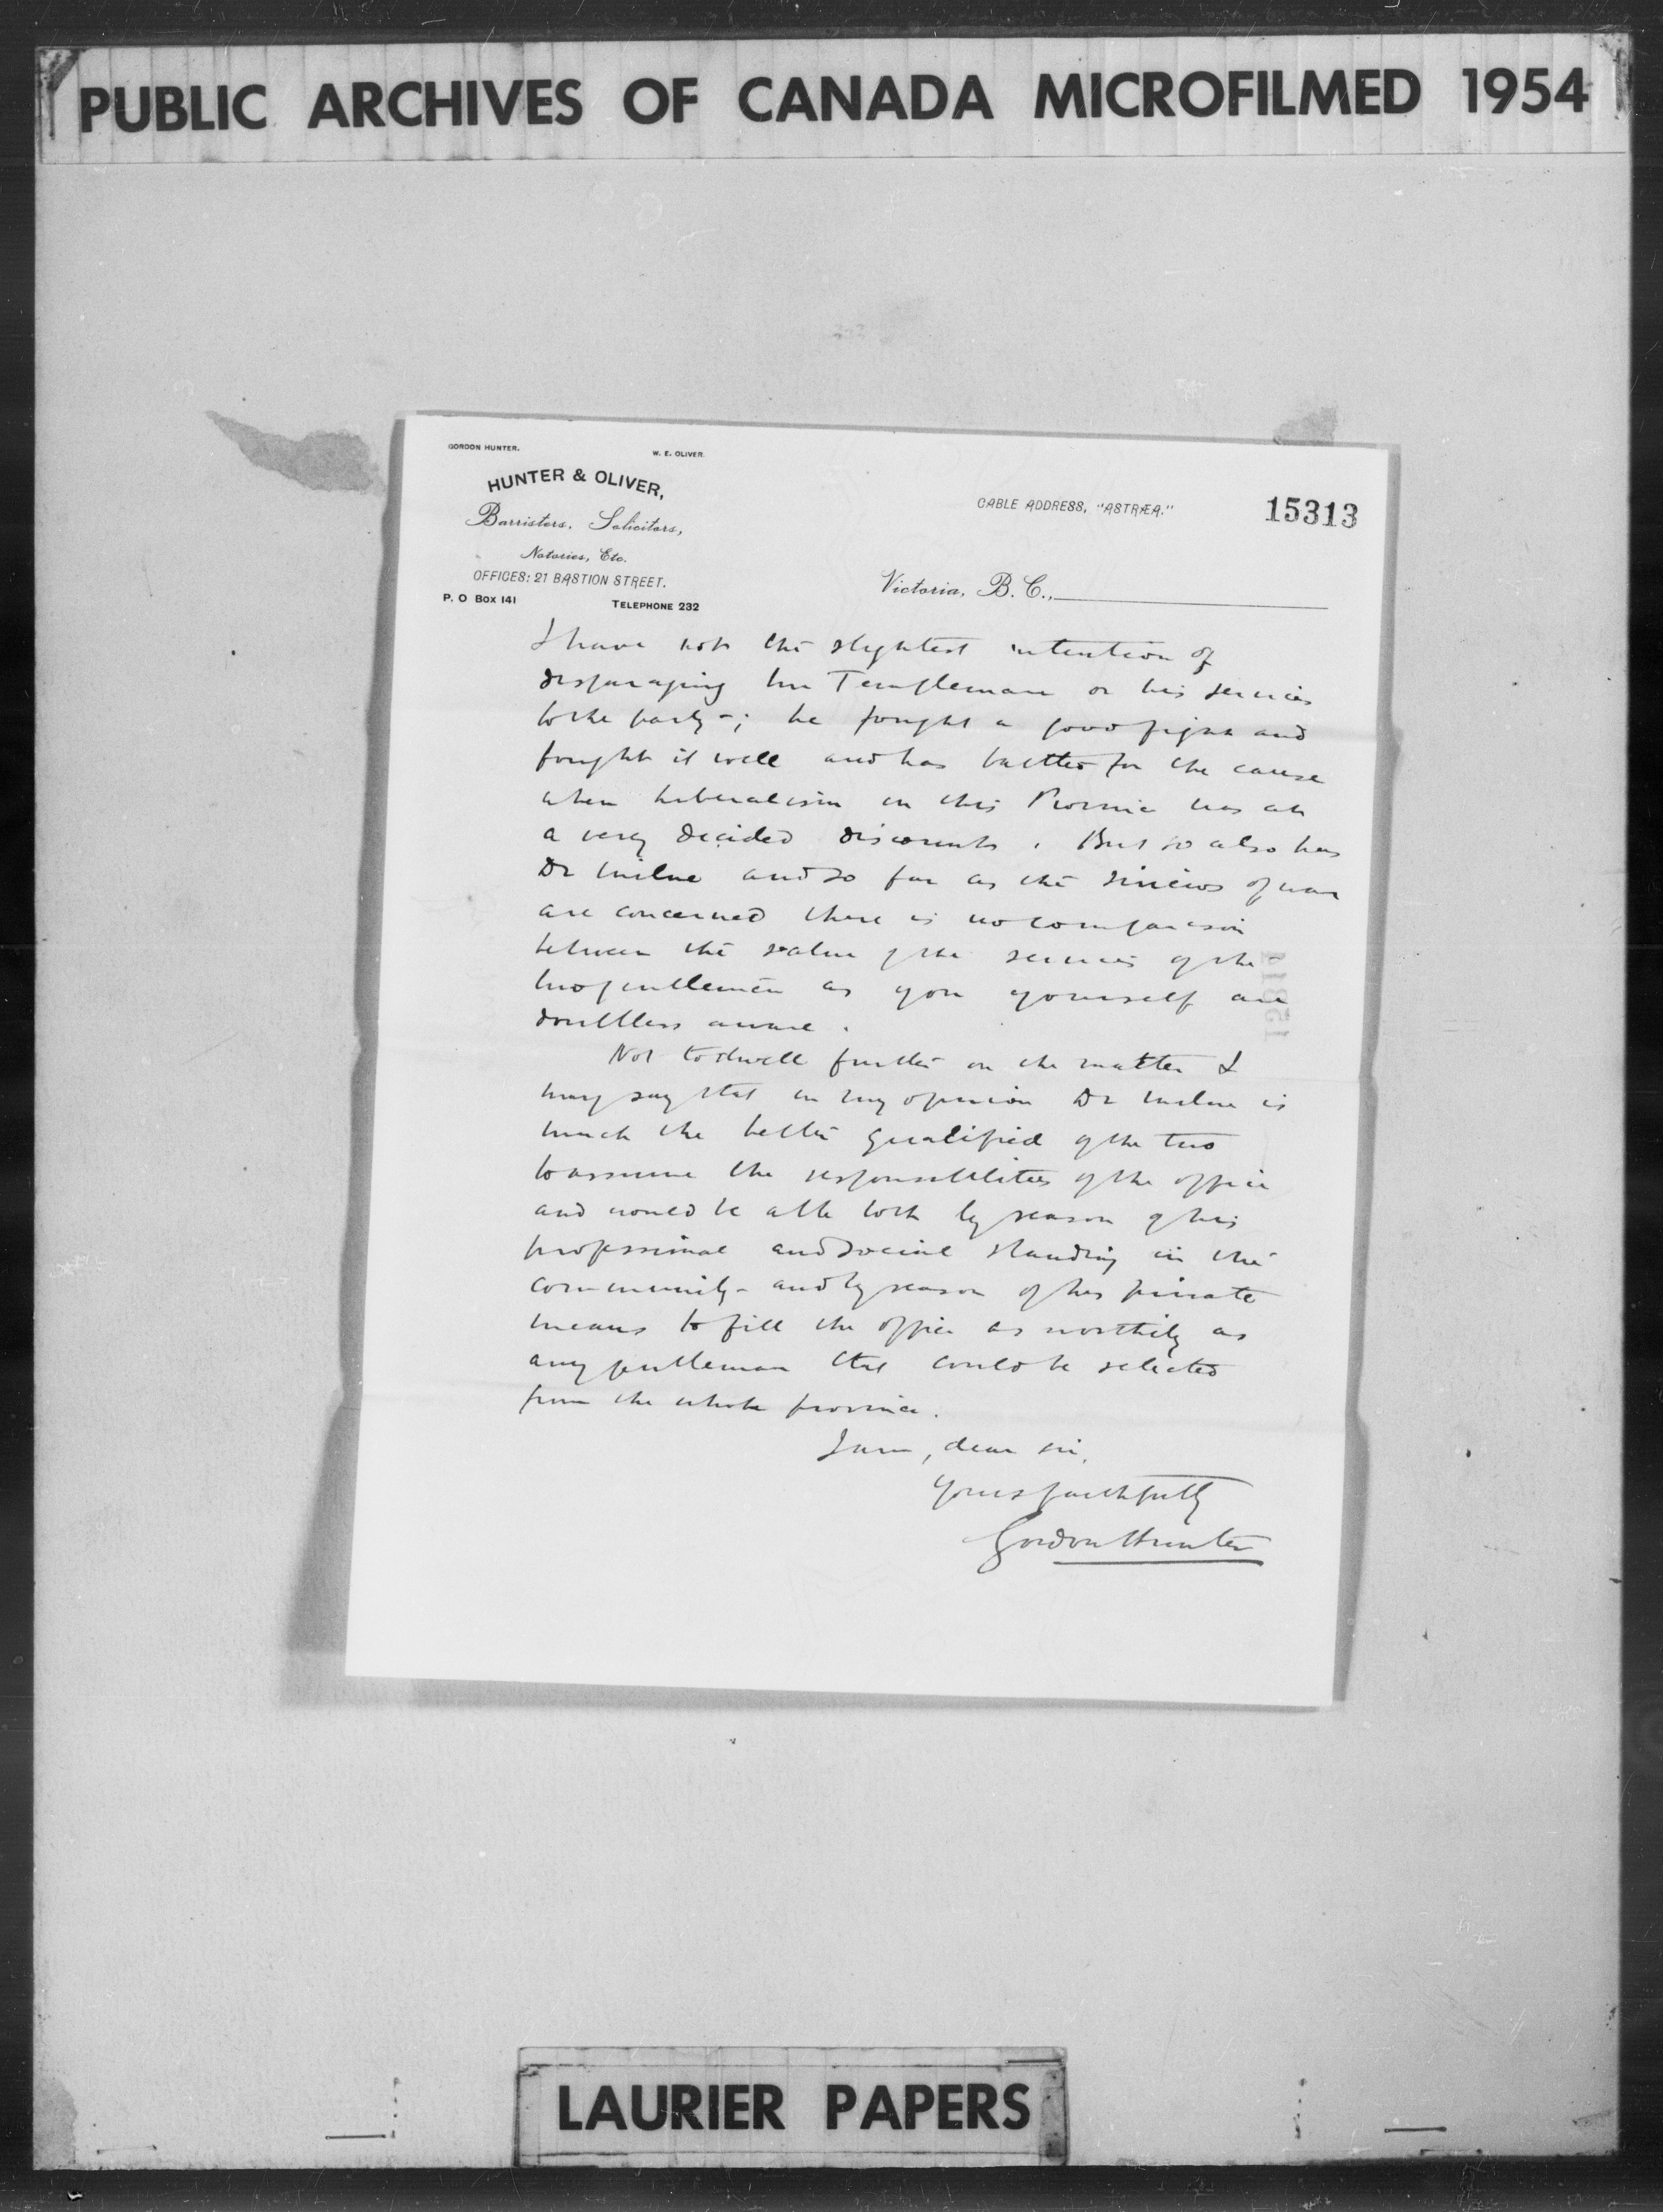 PUBLIC ARCHIVES OF CANADA MICROFILMED 1954
GORDON HUNTER. W. E. OLIVER.
HUNTER & OLIVER,
Barristers, Solicitors,
Notaries, Etc.
OFFICES: 21 BASTION STREET.
P. O Box 141 TELEPHONE 232
CABLE ADDRESS, "ASTRÆA."
15313
Victoria, B. C.,
I have not the slightest intention of
disparaging Mr Templeman or his services
to the party; he fought a good fight and
fought it well and has battled for the cause
when Liberalism in this Province was at
a very decided discount. But so also has
Dr Milne and so far as the sinews of war
are concerned there is no comparison
between the value of the services of the
two gentlemen as you yourself are
doubtless aware.
Not to dwell further on the matter I
may say that in my opinion Dr Milne is
much the better qualified of the two
to assume the responsibilities of the office
and would be able both by reason of his
professional and social standing in the
community and by reason of his private
means to fill the office as worthily as
any gentleman that could be selected
from the whole province.
I am, dear sir,
Yours faithfully
Gordon Hunter
LAURIER PAPERS